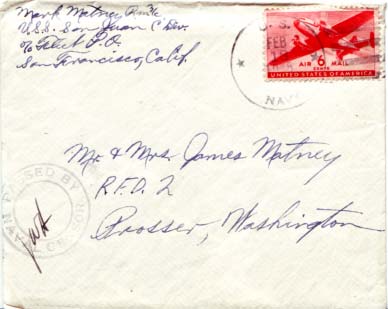 Mark Matney Rm3/c
U.S.S. San Juan C Div.
c/o Fleet P.O.
San Francisco, Calif.
U.S.
FEB
NAVY
AIR MAIL
6
CENTS
UNITED STATES OF AMERICA
Mr. & Mrs. James Matney
R.F.D. 2
Prosser, Washington
PASSED BY